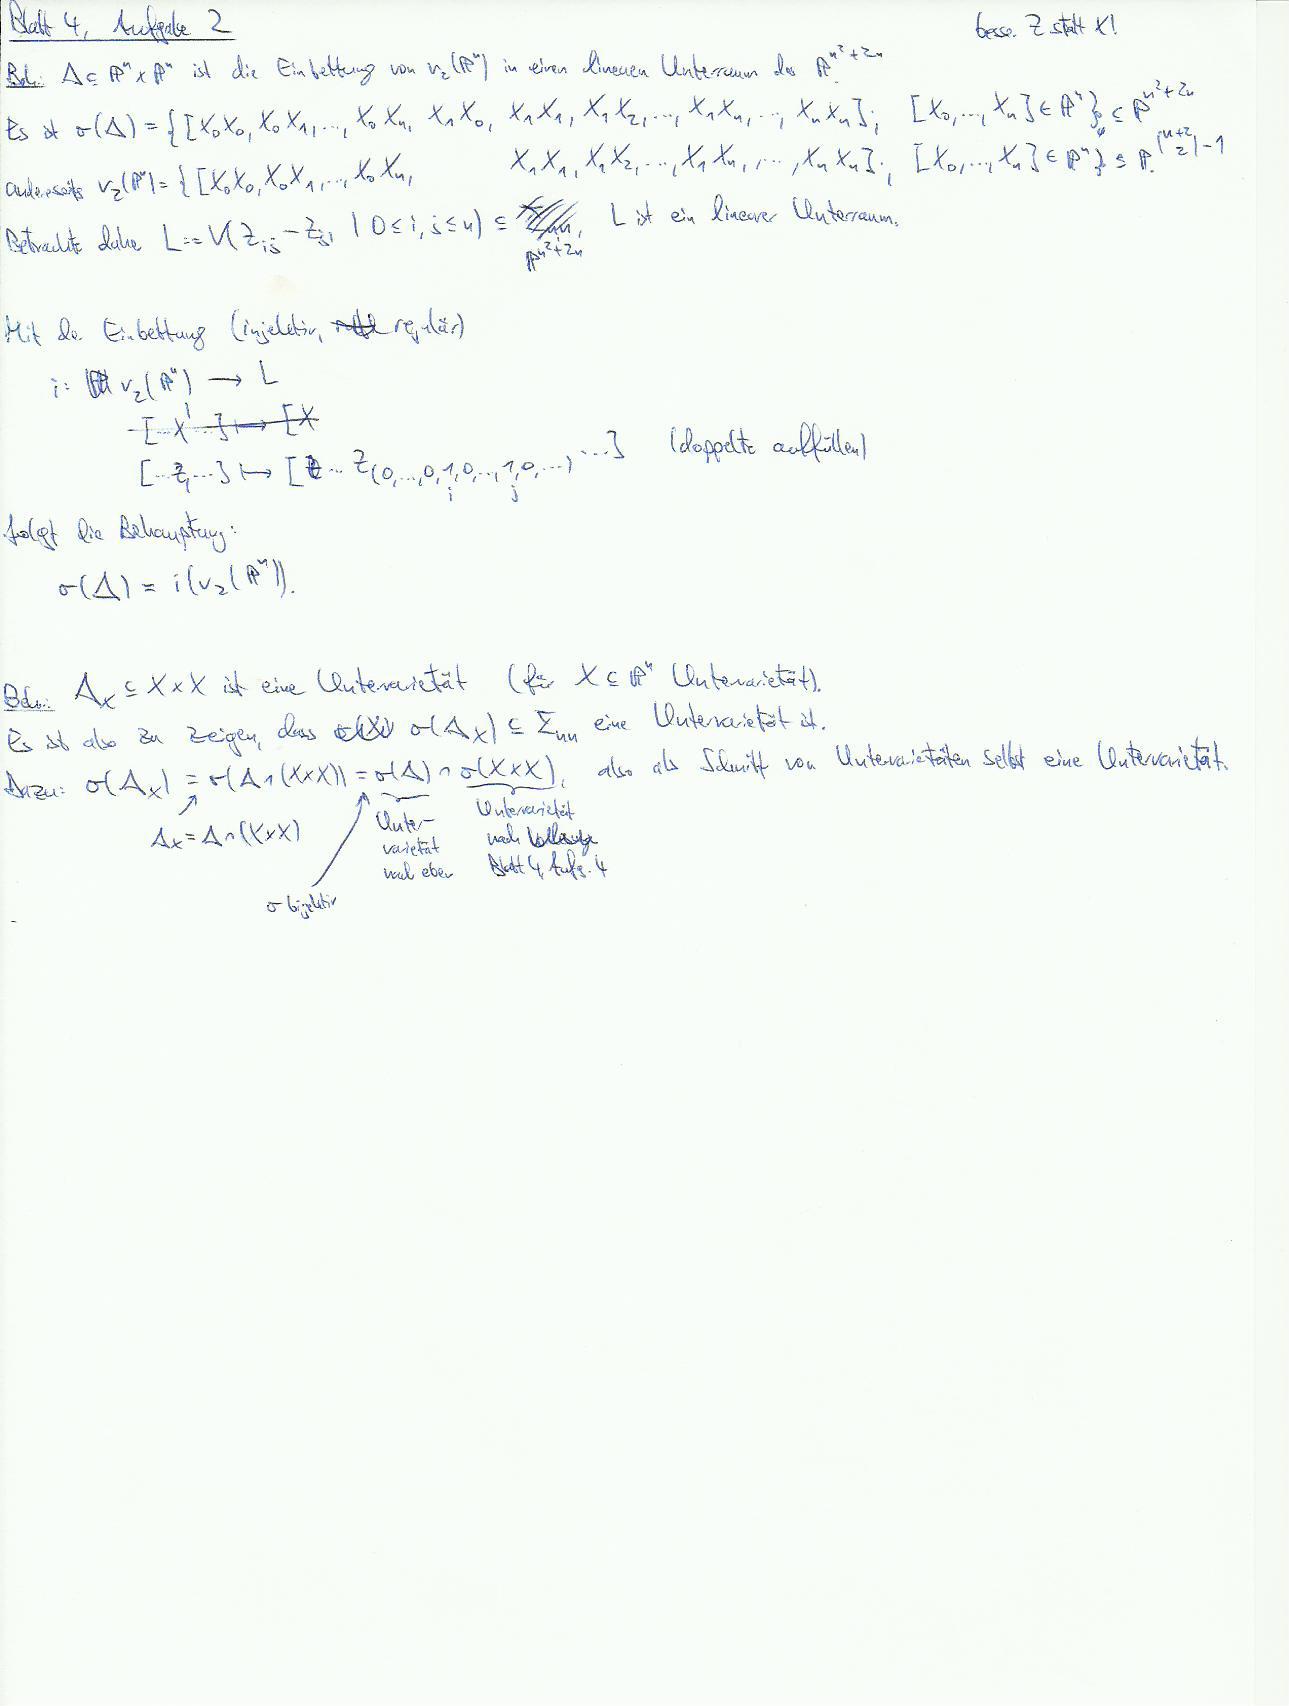 Blatt 4, Aufgabe 2
besser Z statt X!
Beh.: Δ ⊆ ℙⁿ × ℙⁿ ist die Einbettung von v₂(ℙⁿ) in einen linearen Unterraum des ℙ^{n²+2n}.
Es ist σ(Δ) = {[X₀X₀, X₀X₁, ..., X₀Xₙ, X₁X₀, X₁X₁, X₁X₂, ..., X₁Xₙ, ..., XₙXₙ]; [X₀, ..., Xₙ] ∈ ℙⁿ} ⊆ ℙ^{n²+2n},
andererseits v₂(ℙⁿ) = {[X₀X₀, X₀X₁, ..., X₀Xₙ, X₁X₁, X₁X₂, ..., X₁Xₙ, ..., XₙXₙ]; [X₀, ..., Xₙ] ∈ ℙⁿ} ⊆ ℙ^{(n+2 2)-1}.
Betrachte daher L := V(Z_{ij} - Z_{ji} | 0 ≤ i, j ≤ n) ⊆ ℙ^{n²+2n}, L ist ein linearer Unterraum.
Mit der Einbettung (injektiv, regulär)
i: v₂(ℙⁿ) → L
[...X^I...] ↦ [X
[...Z_I...] ↦ [... Z_{(0,...,0,1,0,...,1,0,...)} ...] (doppelte auffüllen)
i j
folgt die Behauptung:
σ(Δ) = i(v₂(ℙⁿ)).
Beh.: Δ_X ⊆ X×X ist eine Untervarietät (für X ⊆ ℙⁿ Untervarietät).
Es ist also zu zeigen, dass σ(Δ_X) ⊆ Σ_{nn} eine Untervarietät ist.
Dazu: σ(Δ_X) = σ(Δ ∩ (X×X)) = σ(Δ) ∩ σ(X×X), also als Schnitt von Untervarietäten selbst eine Untervarietät.
Δ_X = Δ ∩ (X×X)
σ bijektiv
Unter-
varietät
nach eben
Untervarietät
nach
Blatt 4, Aufg. 4